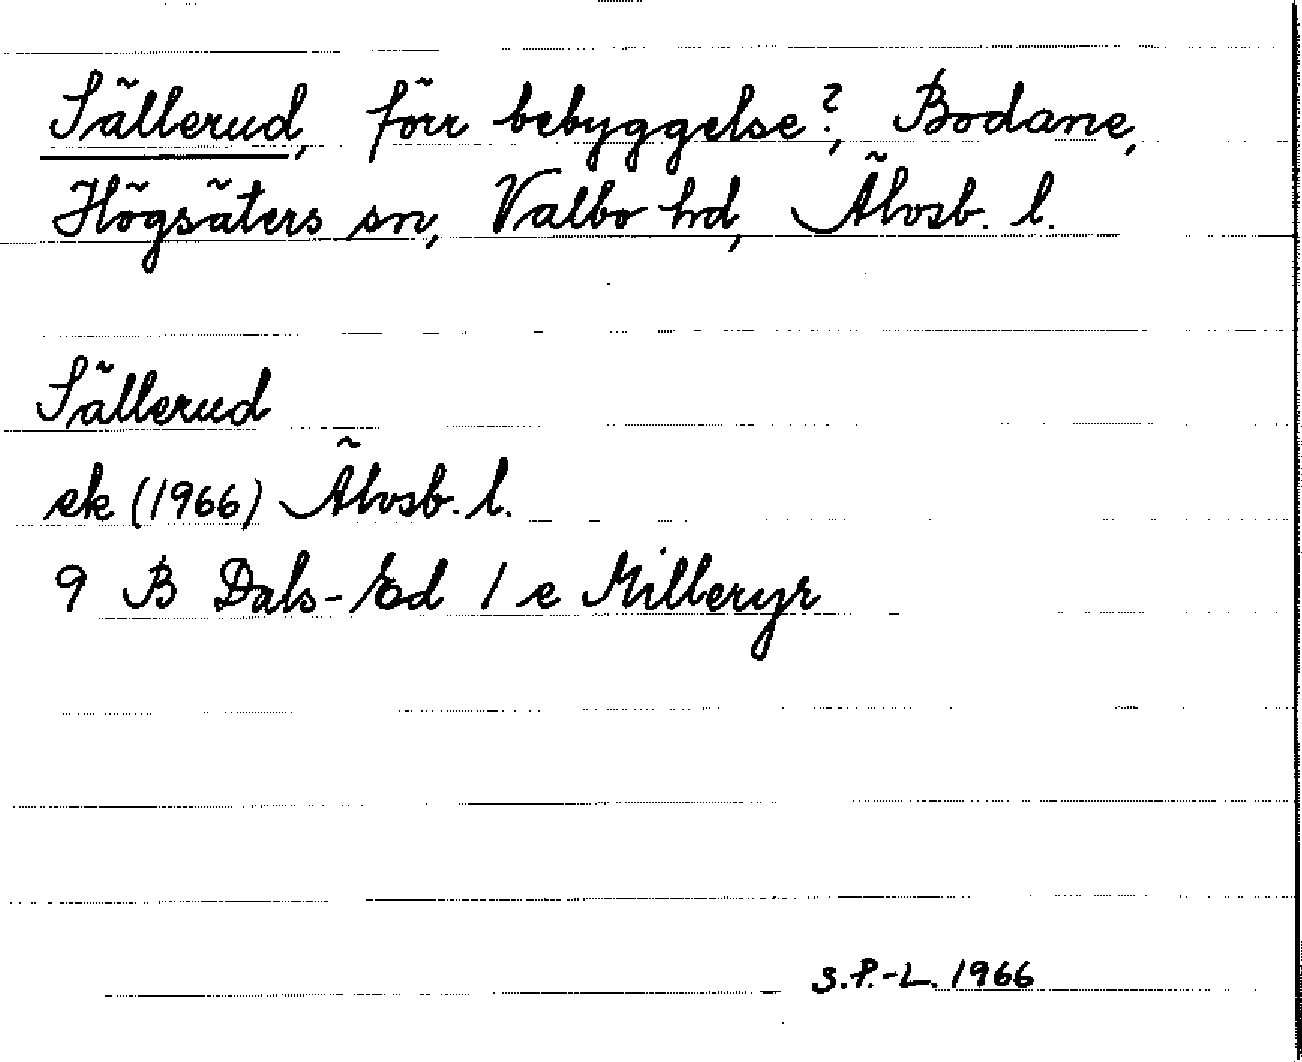 Sällerud, förr bebyggelse?, Bodane,
Högsäters sn, Valbo hd, Älvsb. l.
Sällerud
ek (1966) Älvsb. l.
9 B Dals-Ed 1 e Milleryr
S.P.-L. 1966